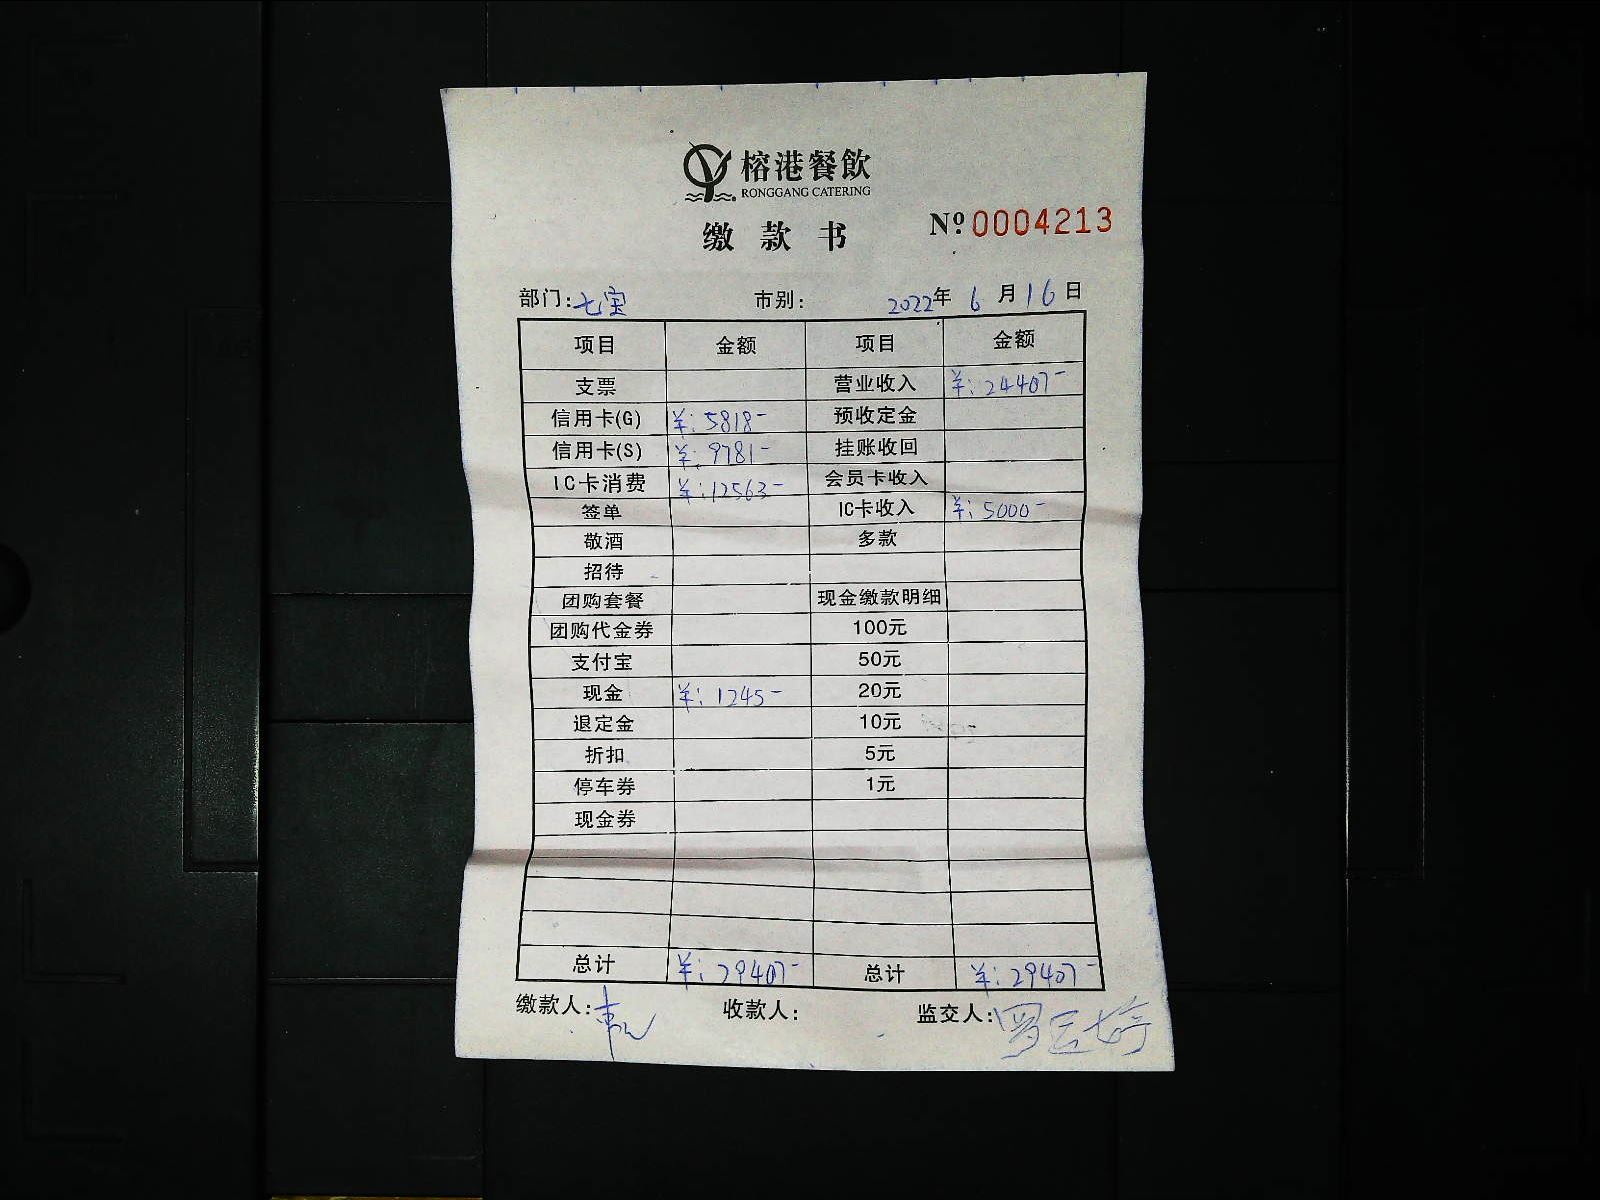 榕港餐飲
RONGGANG CATERING
缴款书
№ 0004213
部门:七宝 市别: 2022年 6月16日
项目 金额 项目 金额
支票 营业收入 ¥:24407-
信用卡(G) ¥:5818- 预收定金
信用卡(S) ¥:9781- 挂账收回
IC卡消费 ¥:12563- 会员卡收入
签单 IC卡收入 ¥:5000-
敬酒 多款
招待
团购套餐 现金缴款明细
团购代金券 100元
支付宝 50元
现金 ¥:1245- 20元
退定金 10元
折扣 5元
停车券 1元
现金券
总计 ¥:29407- 总计 ¥:29407-
缴款人: 收款人: 监交人: